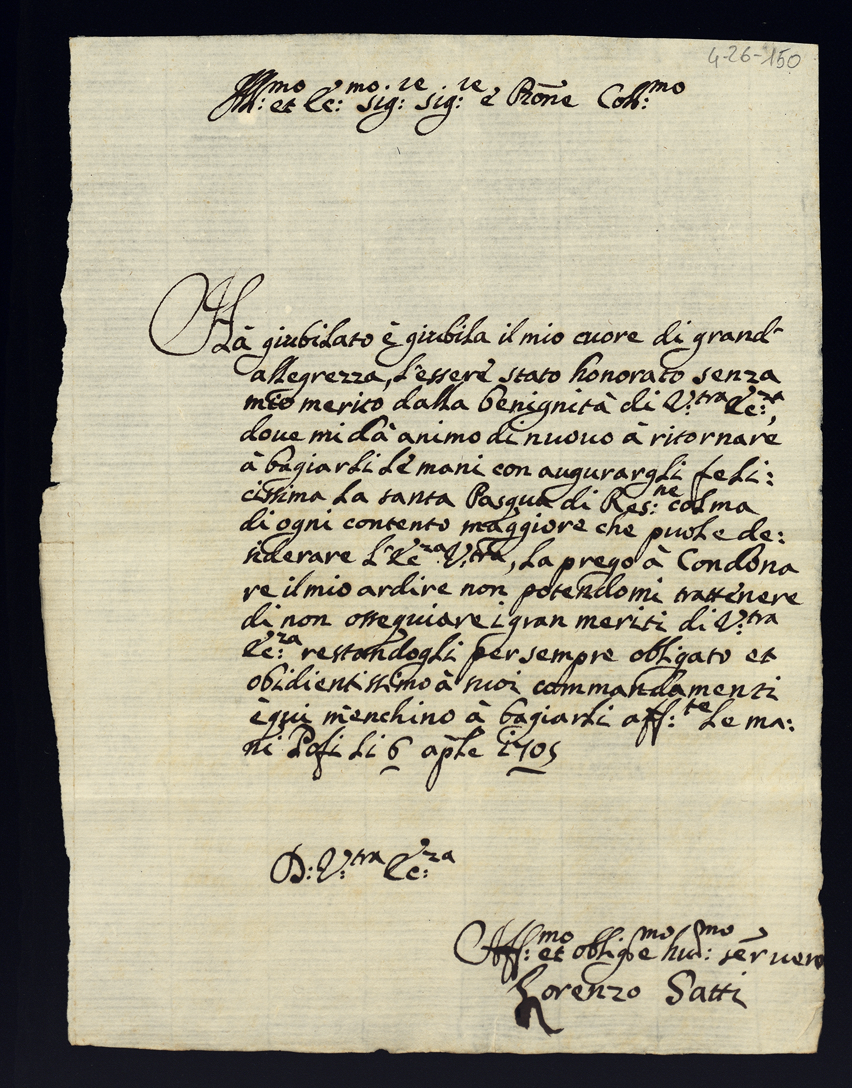 4-26-150
Ill:mo et Ec:mo sig:re sig:re è Pròne Col:mo
Hà giubilato è giubila il mio cuore di grand'
allegrezza, l'esserè stato honorato senza
mio merito dalla benignità di V:tra Ec:za,
doue mi dà animo di nuouo à ritornare
à bagiarli lè mani con augurargli feli:
cissima la santa Pasqua di Res:ne colma
di ogni contento maggiore che puole de:
siderare l'Ec:za V:tra, la prego à Condona
re il mio ardire non potendomi trattenere
di non ossequiare i gran meriti di V:tra
Ec:za restandogli per sempre obligato et
obidientissimo à suoi commandamenti
è qui m'enchino à bagiarli aff:te le ma:
ni Pofi li 6 aple 1705
D: V:tra Ec:za
Aff:mo et oblig:mo e hu:mo seruero
Lorenzo Satti